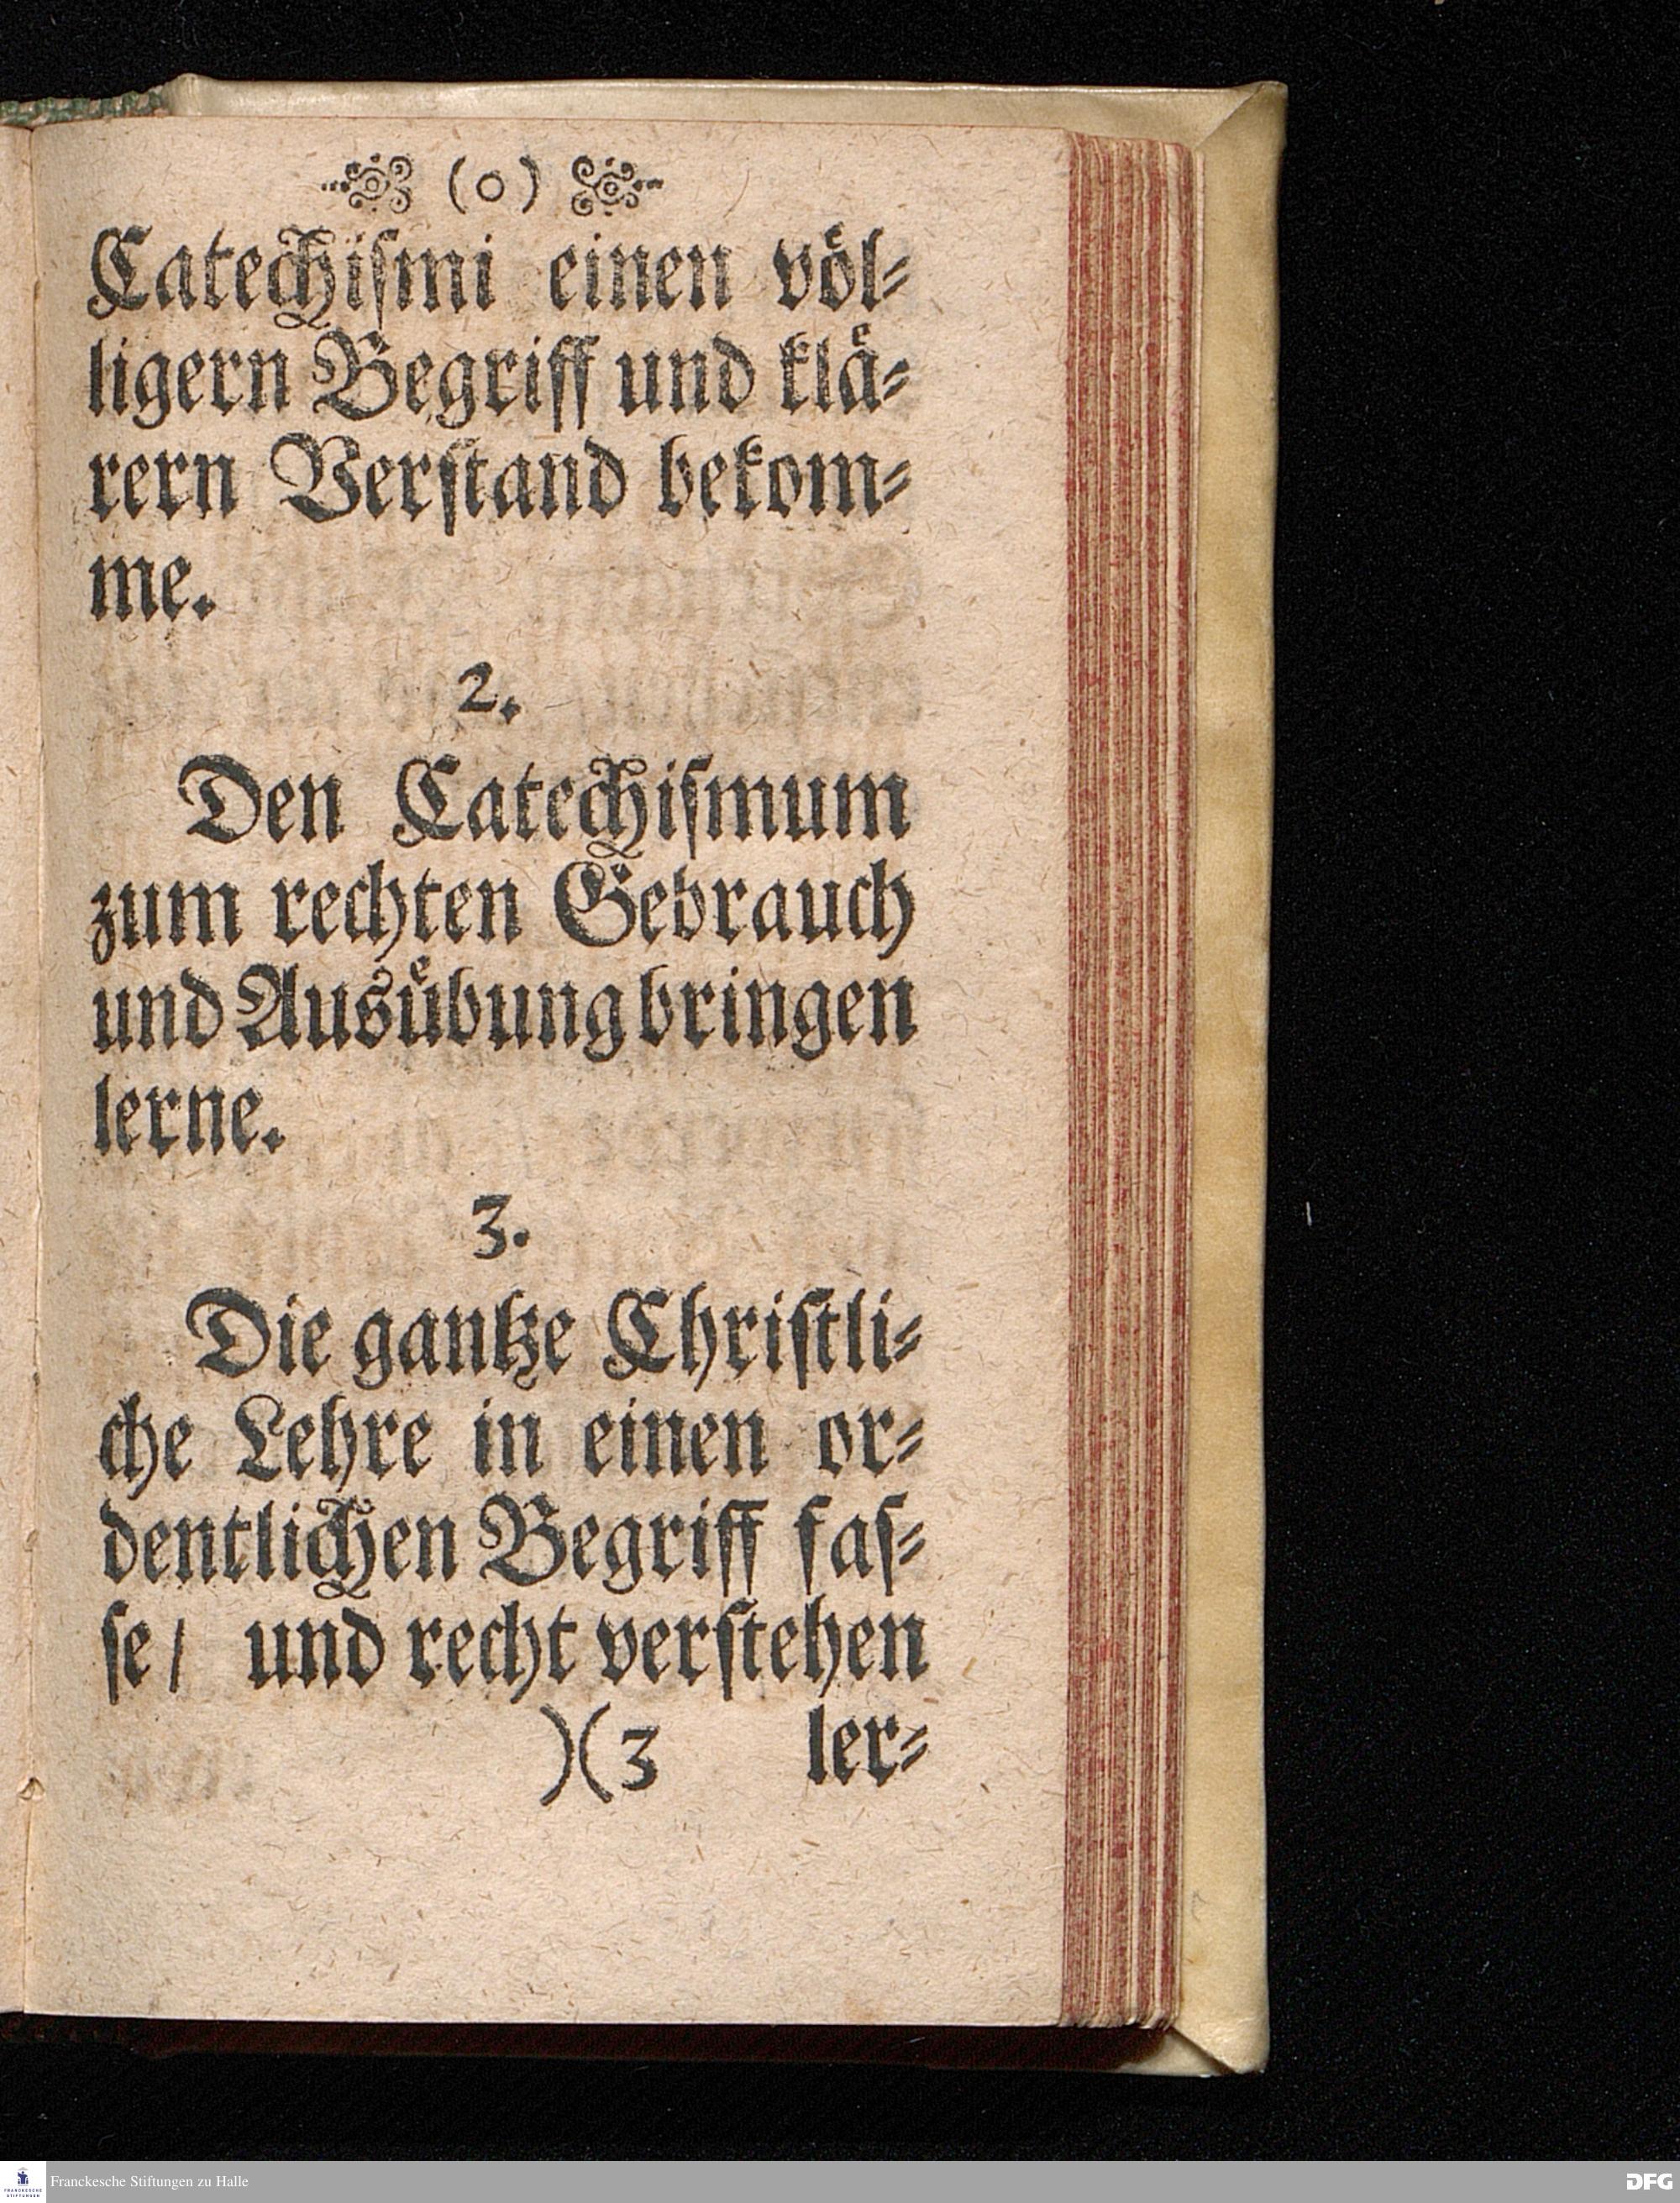 (o)
Catechiſmi einen voͤl-
ligern Begriff und klaͤ-
rern Verſtand bekom-
me.
2.
Den Catechiſmum
zum rechten Gebrauch
und Ausuͤbung bringen
lerne.
3.
Die gantze Chriſtli-
che Lehre in einen or-
dentlichen Begriff faſ-
ſe/ und recht verſtehen
)(3 ler-
FRANCKESCHE
STIFTUNGEN
Franckesche Stiftungen zu Halle
DFG